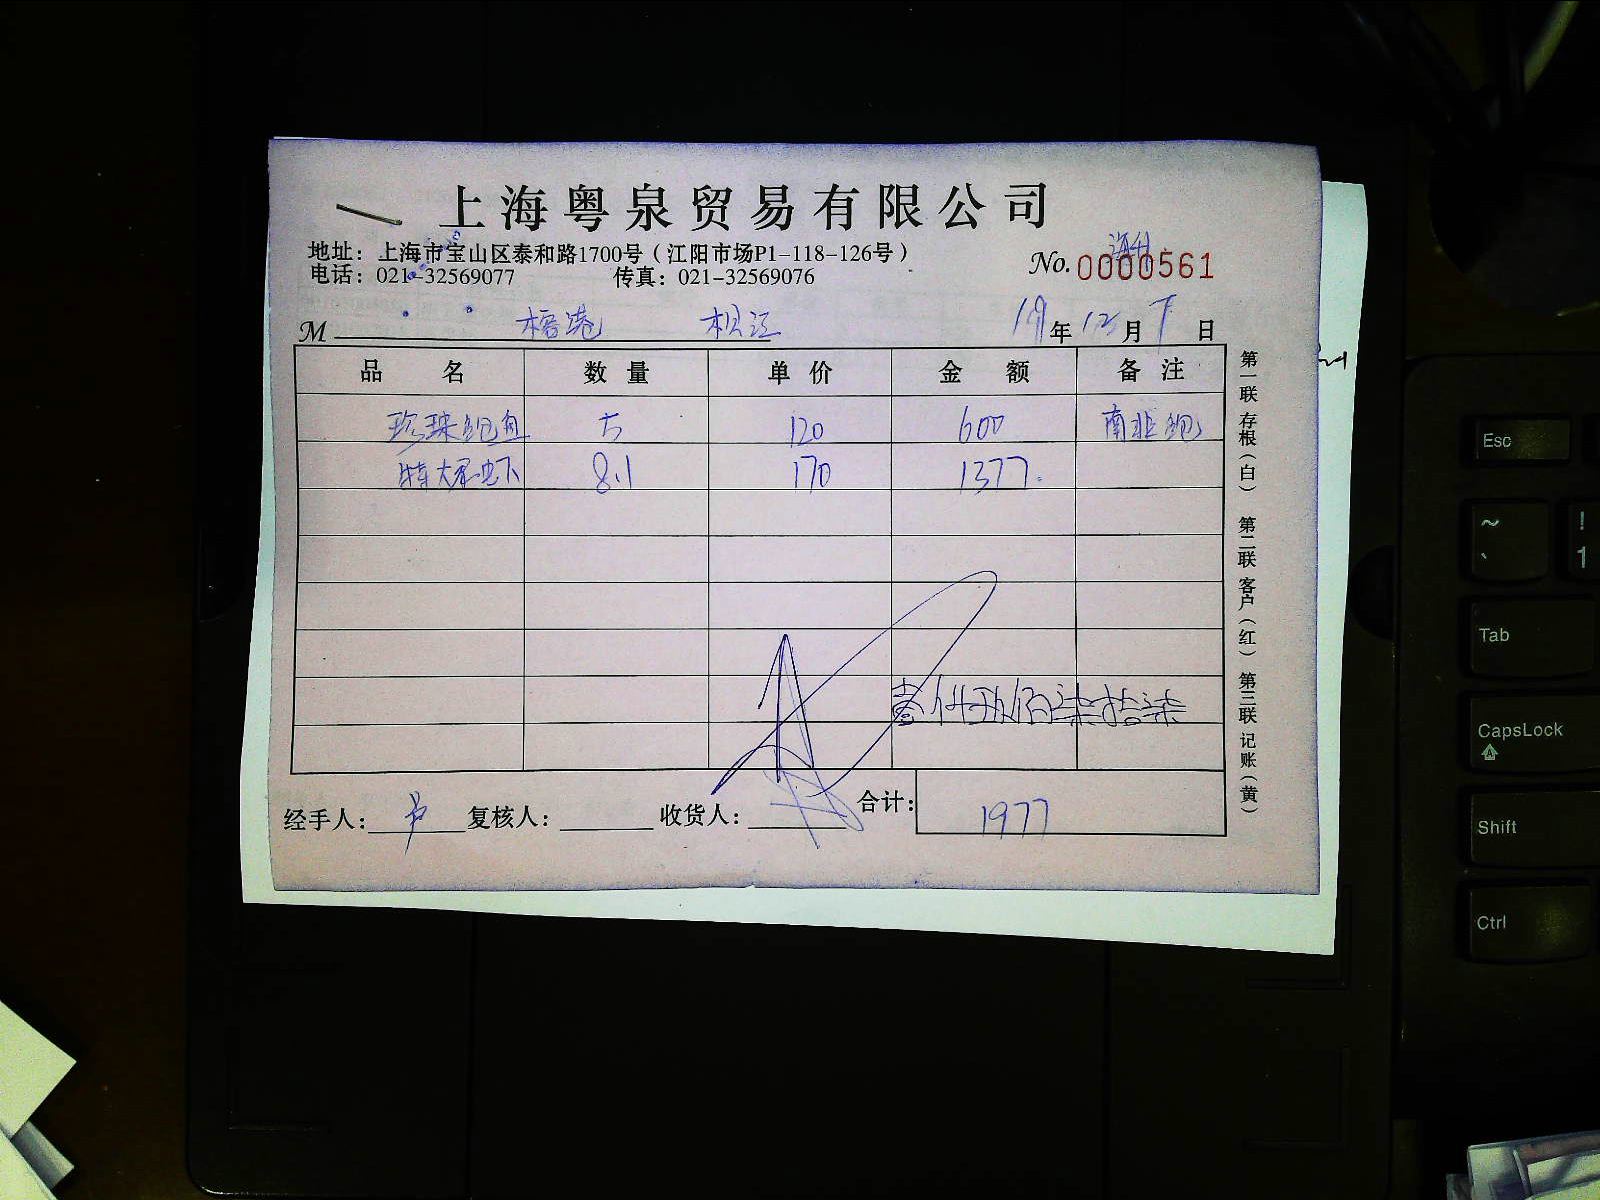 上海粤泉贸易有限公司
地址：上海市宝山区泰和路1700号（江阳市场P1-118-126号）
电话：021-32569077 传真：021-32569076
No. 0000561
M 榕港 松江 19年12月 日
品名 数量 单价 金额 备注
珍珠鲍鱼 5 120 600 南非鲍
特大尾虾 8.1 170 1377.
壹仟玖佰柒拾柒
经手人： 复核人： 收货人： 合计： 1977
第一联 存根（白） 第二联 客户（红） 第三联 记账（黄）
Esc
~ `
! 1
Tab
CapsLock
Shift
Ctrl